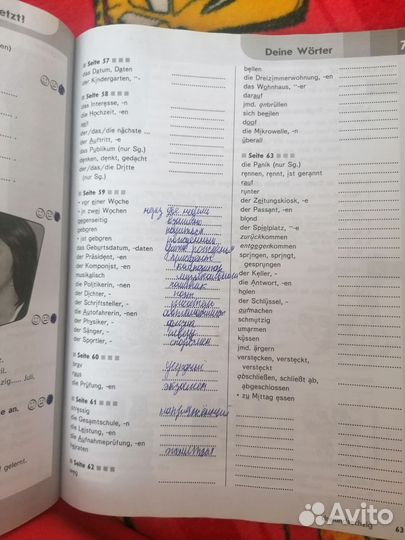 etzt!
Deine Wörter
7
Seite 57
das Datum, Daten
der Kindergarten, ¨-
Seite 58
das Interesse, -n
die Hochzeit, -en
der/das/die nächste ...
der Auftritt, -e
das Publikum (nur Sg.)
denken, denkt, gedacht
der/das/die Dritte
(nur Sg.)
Seite 59
vor einer Woche
in zwei Wochen через две недели
gegenseitig взаимно
geboren родиться
ist geboren
das Geburtsdatum, -daten дата рождения
der Präsident, -en президент
der Komponist, -en композитор
musikalisch музыкальный
die Politikerin, -nen политик
der Dichter, - поэт
der Schriftsteller, - писатель
die Autofahrerin, -nen
der Physiker, - физик
der Sänger, - певец
der Sportler, - спортсмен
Seite 60
brav
raus
die Prüfung, -en экзамен
Seite 61
stressig
die Gesamtschule, -n
die Leistung, -en
die Aufnahmeprüfung, -en
heiraten
Seite 62
weg
bellen
die Dreizimmerwohnung, -en
das Wohnhaus, ¨-er
darauf
jmd. anbrüllen
sich beeilen
doof
die Mikrowelle, -n
überall
Seite 63
die Panik (nur Sg.)
rennen, rennt, ist gerannt
rauf
runter
der Zeitungskiosk, -e
der Passant, -en
blond
der Spielplatz, ¨-e
zurückkommen
entgegenkommen
springen, springt,
gesprungen
der Keller, -
die Antwort, -en
holen
der Schlüssel, -
aufmachen
schmutzig
umarmen
küssen
jmd. ärgern
verstecken, versteckt,
versteckt
abschließen, schließt ab,
abgeschlossen
zu Mittag essen
Juli.
e an.
gelernt.
63
Avito